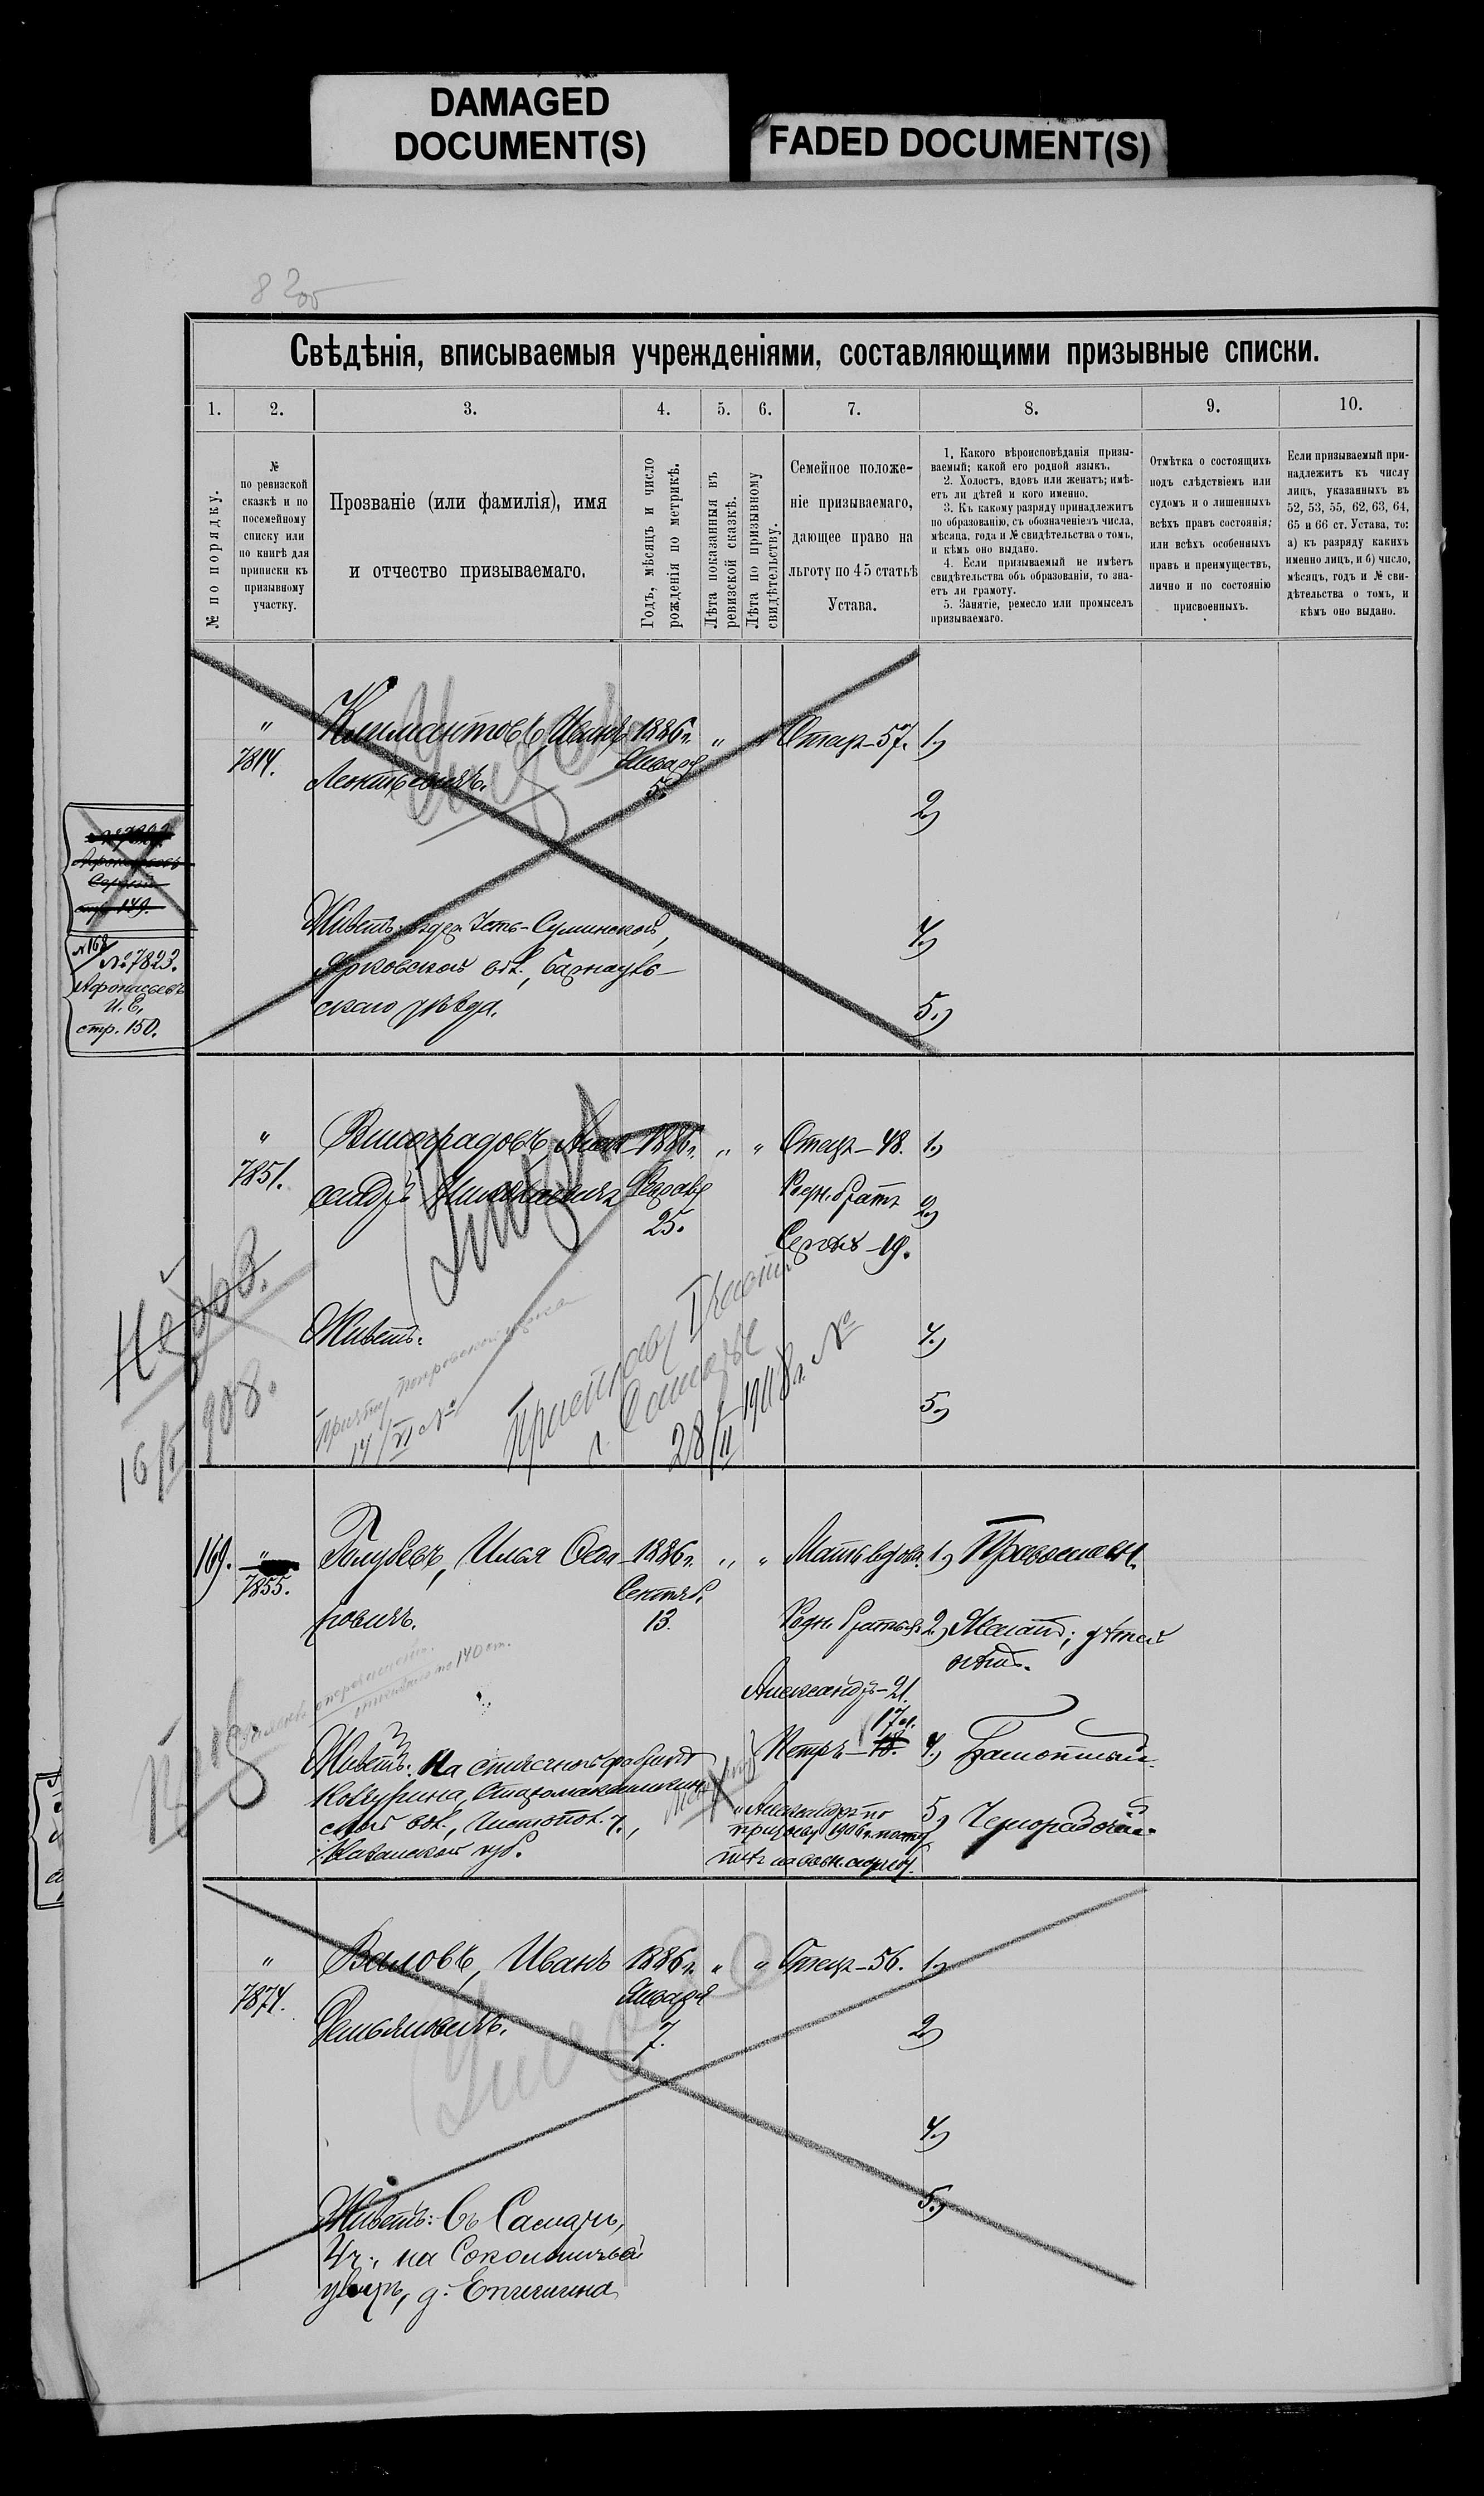 DAMAGED
DOCUMENT(S)
FADED DOCUMENT(S)
Свѣдѣнія, вписываемыя учрежденіями, составляющими призывные списки.
1. 2. 3. 4. 5. 6. 7. 8. 9. 10.
№ по порядку.
№
по ревизской
сказкѣ и по
посемейному
списку или
по книгѣ для
приписки къ
призывному
участку.
Прозваніе (или фамилія), имя
и отчество призываемаго.
Годъ, мѣсяцъ и число
рожденія по метрикѣ.
Лѣта показанныя въ
ревизской сказкѣ.
Лѣта по призывному
свидѣтельству.
Семейное положе-
ніе призываемаго,
дающее право на
льготу по 45 статьѣ
Устава.
1. Какого вѣроисповѣданія призы-
ваемый; какой его родной языкъ.
2. Холостъ, вдовъ или женатъ; имѣ-
етъ ли дѣтей и кого именно.
3. Къ какому разряду принадлежитъ
по образованію, съ обозначеніемъ числа,
мѣсяца, года и № свидѣтельства о томъ,
и кѣмъ оно выдано.
4. Если призываемый не имѣетъ
свидѣтельства объ образованіи, то зна-
етъ ли грамоту.
5. Занятіе, ремесло или промыселъ
призываемаго.
Отмѣтка о состоящихъ
подъ слѣдствіемъ или
судомъ и о лишенныхъ
всѣхъ правъ состоянія;
или всѣхъ особенныхъ
правъ и преимуществъ,
лично и по состоянію
присвоенныхъ.
Если призываемый при-
надлежитъ къ числу
лицъ, указанныхъ въ
52, 53, 55, 62, 63, 64,
65 и 66 ст. Устава, то:
а) къ разряду какихъ
именно лицъ, и б) число,
мѣсяцъ, годъ и № сви-
дѣтельства о томъ, и
кѣмъ оно выдано.
" Климантовъ, Иванъ 1886 г. " " Отецъ-57. 1)
7814. Леонтьевичъ. Января
5. 2)
стр. 149.
№ 168
№ 7823.
Афонасьевъ
И. Е.
стр. 150.
Живетъ: въ дер. Усть-Суминской, 4)
Ярковской вол., Барнауль-
скаго уѣзда. 5)
" Виноградовъ Алек- 1886 г. " " Отецъ-48. 1)
7851. сандръ Николаевичъ Февраля Родн. братъ 2)
25. Сергѣй-19.
Живетъ: 4)
5)
28/II 1908 г. №
16/I 908.
169. " Голубевъ, Илья Ѳедо- 1886 г. " " Мать вдова. 1) Православн.
7855. ровичъ. Сентяб.
13. Родн. братья: 2) Женатъ; дѣтей
нѣтъ.
Александръ-21.
17 л.
Петръ-18. 4) Грамотный.
Живетъ: На спичечной фабрикѣ
Ковурина, Старомокшин-
ской вол., Чистопол. у.,
Казанской губ.
Александръ по
призыву 1906 г. посту-
пилъ на воен. службу.
5) Чернорабочій.
"Валовъ, Иванъ 1886 г. " " Отецъ-56. 1)
7874. Демьяновичъ. Января
7. 2)
4)
5)
Живетъ: Въ Самарѣ,
4 ч., на Сокольничьей
улицѣ, д. Епичкина